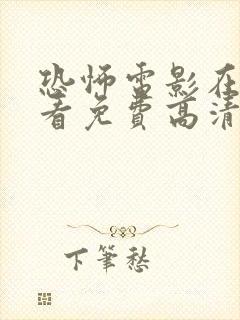 恐怖電影在
看免費高清
下筆愁